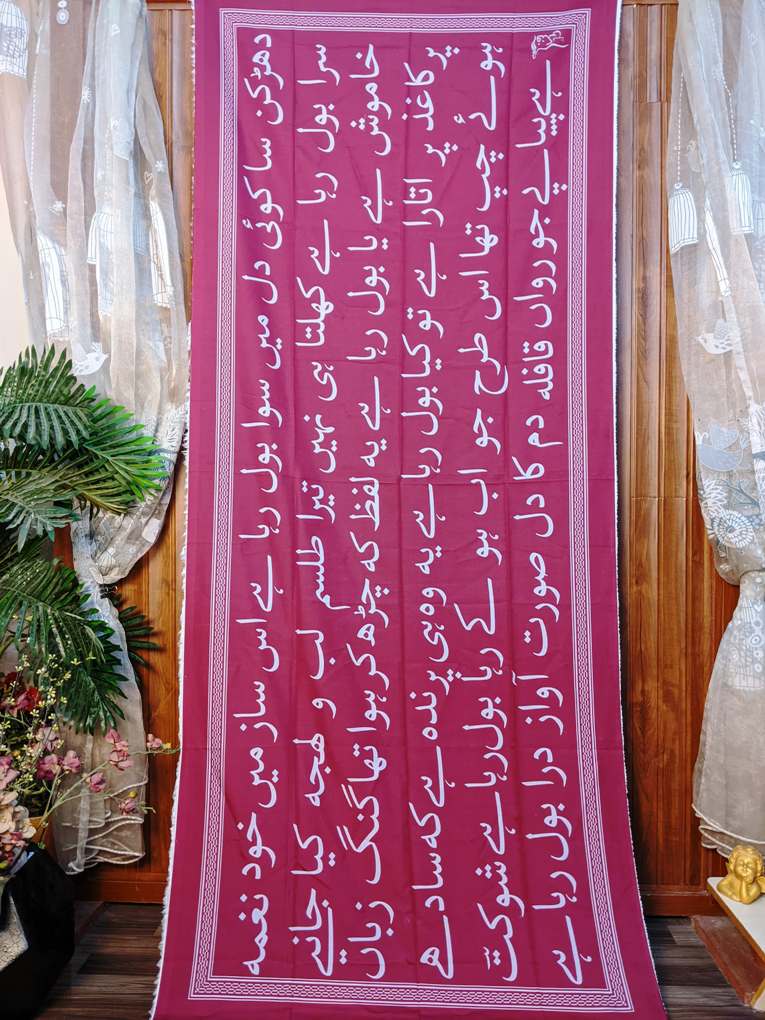 دھڑکن سا کوئی دل میں سوا بول رہا ہے اس ساز میں خود نغمہ
سرا بول رہا ہے کھلتا ہی نہیں تیرا طلسم لب و لھجہ کیا جانے
خاموش ہے یا بول رہا ہے یہ لفظ کہ چڑھ کر ہوا تھا گنگ زباں
پر کاغذ پر اتارا ہے تو کیا بول رہا ہے یہ وہ ہی پرندہ ہے کہ سادھے
ہوئے چپ تھا اس طرح جو اب ہو کے رہا بول رہا ہے شوکتؔ
ہے پیاپے جو رواں قافلہ دم کا دل صورت آواز درا بول رہا ہے